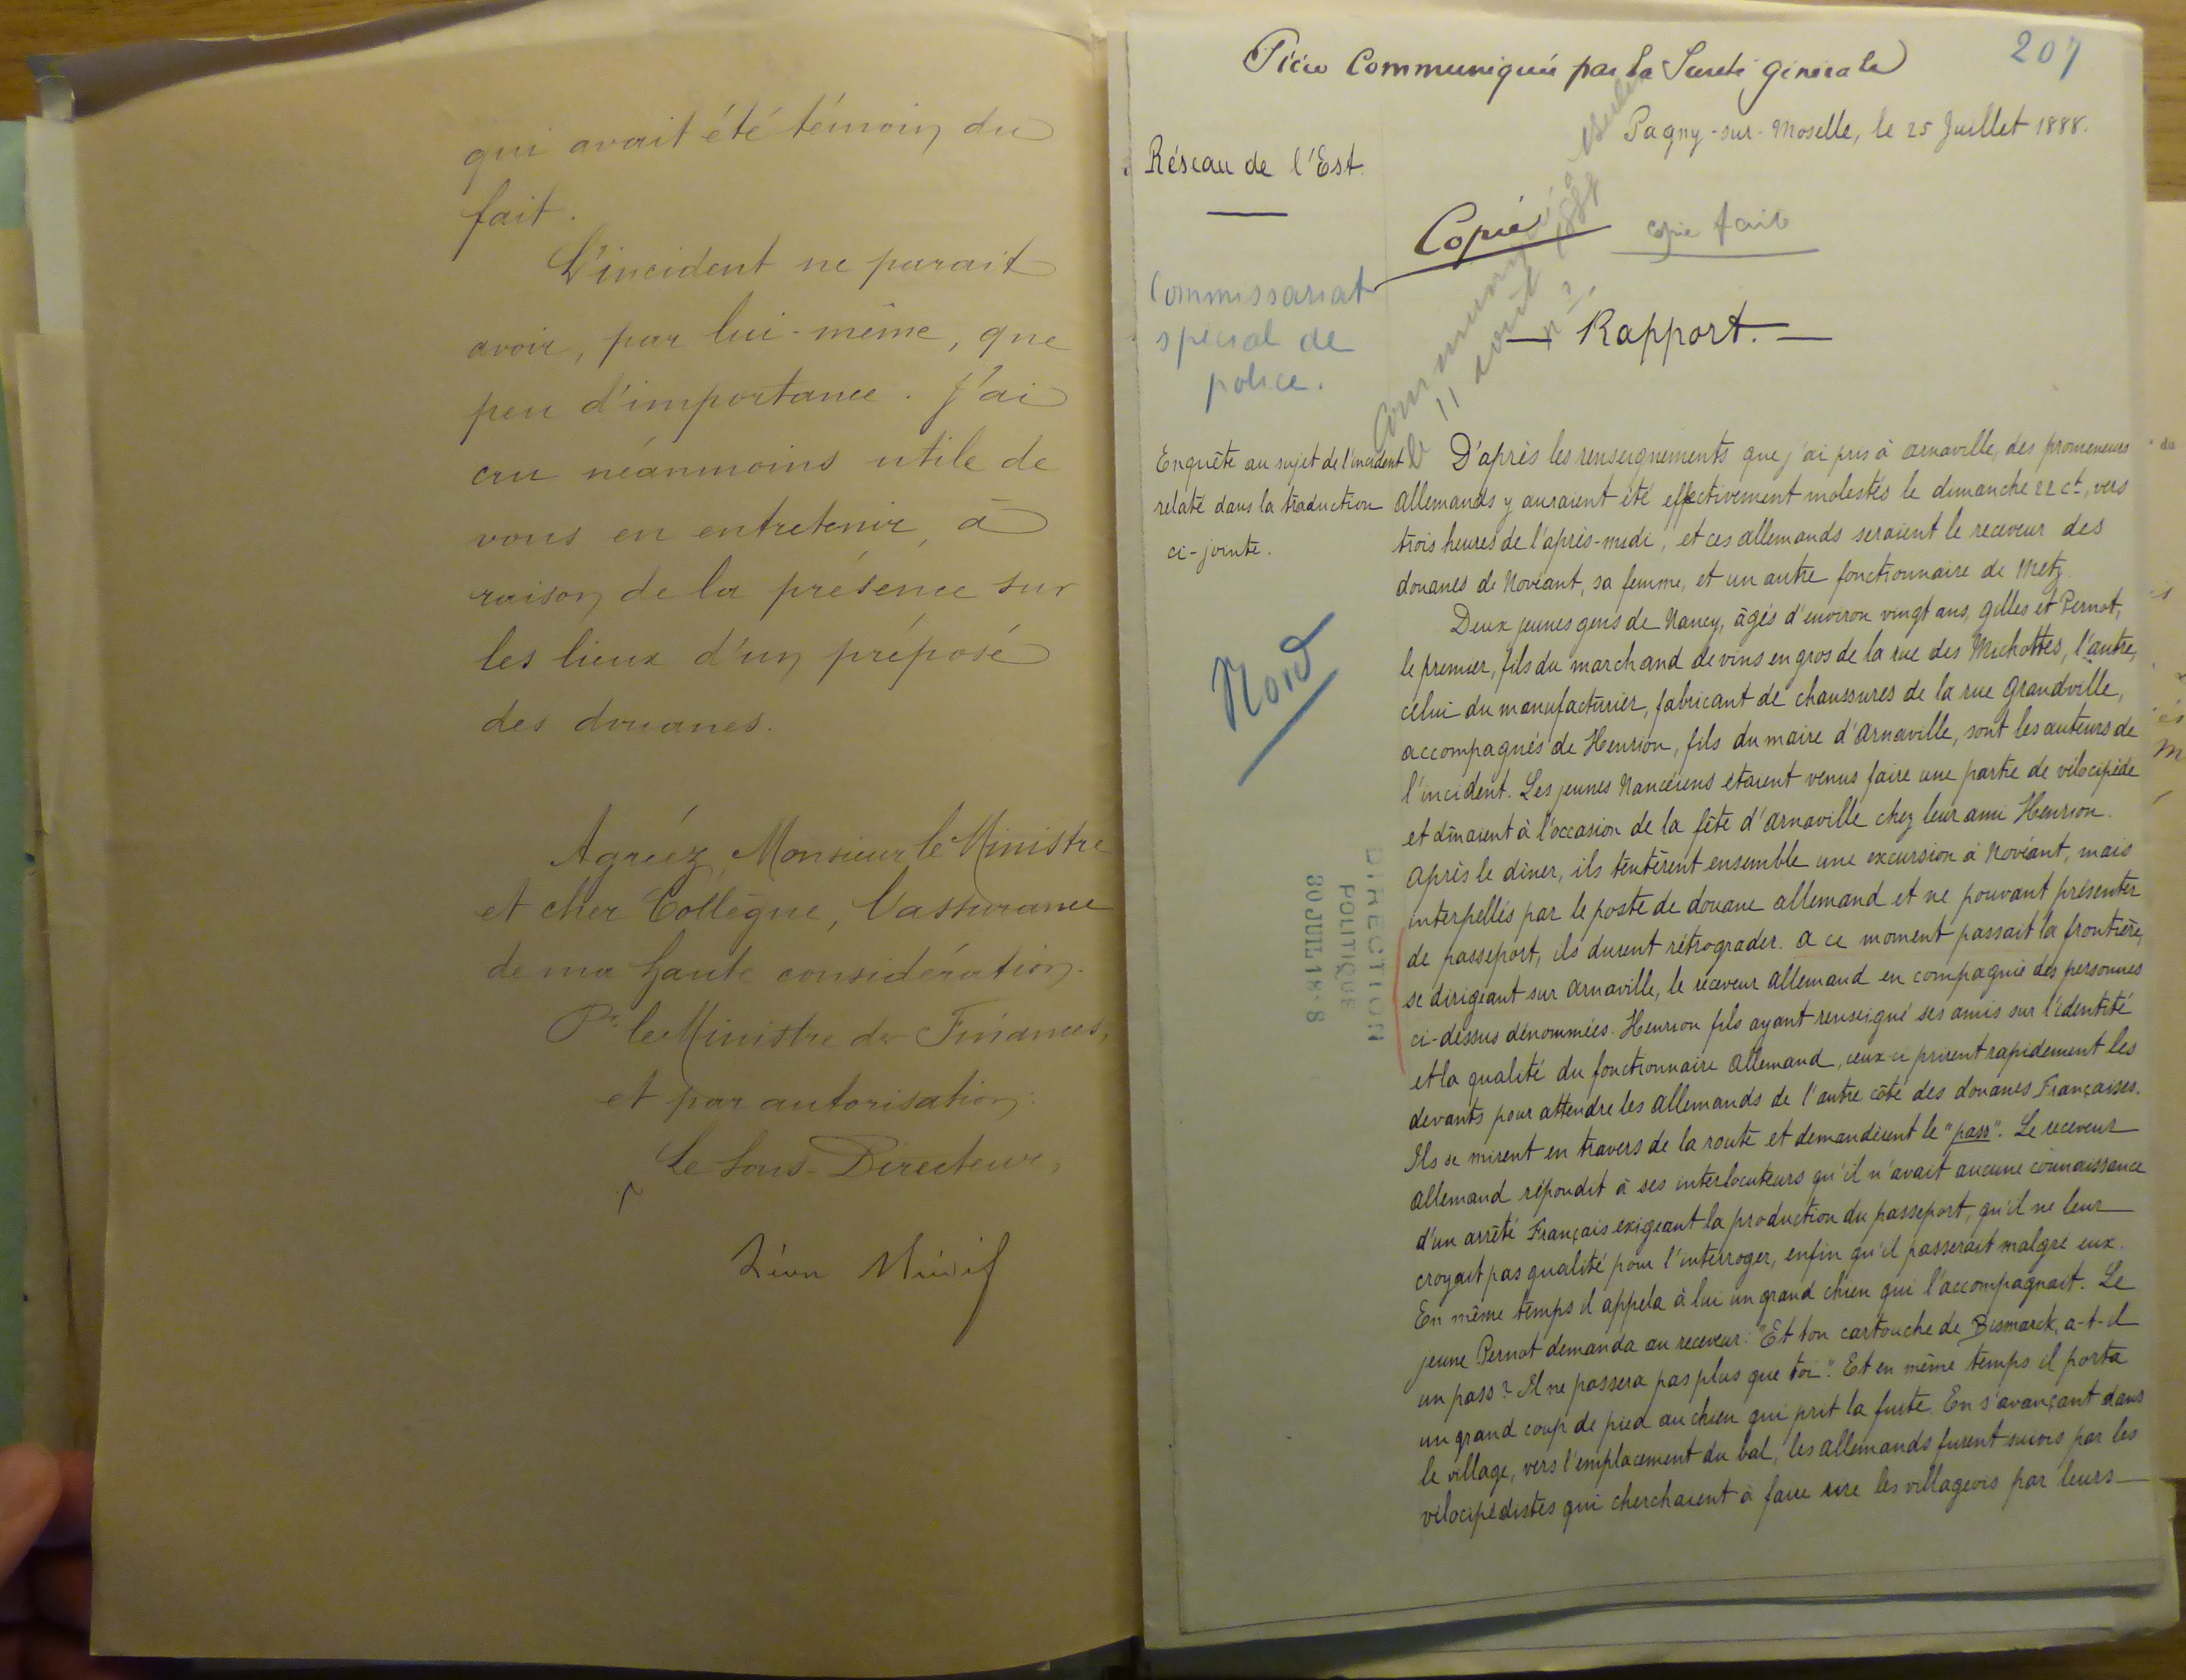 qui avait été témoin du
fait.
L'incident ne parait
avoir, par lui-même, que
peu d'importance. J'ai
cru néanmoins utile de
vous en entretenir, à
raison de la présence sur
les lieux d'un préposé
des douanes.
Agréez, Monsieur le Ministre
et cher Collègue, l'assurance
de ma haute considération.
Pr. le Ministre des Finances,
et par autorisation:
Le Sous-Directeur,
Pièce Communiquée par la Sureté générale
207
Pagny-sur-Moselle, le 25 Juillet 1888.
Réseau de l'Est.
Copié
copie faite
Commissariat
spécial de
police.
Communiqué à Berlin
le 11 août 1888
n°
— Rapport. —
Enquête au sujet de l'incident
relaté dans la traduction
ci-jointe.
Nord
DIRECTION
POLITIQUE
30 JUIL 1888
D'après les renseignements que j'ai pris à Arnaville, des promeneurs
allemands y auraient été effectivement molestés le dimanche 22 ct, vers
trois heures de l'après-midi, et ces allemands seraient le receveur des
douanes de Novéant, sa femme, et un autre fonctionnaire de Metz.
Deux jeunes gens de Nancy, âgés d'environ vingt ans, Gilles et Pernot,
le premier, fils du marchand de vins en gros de la rue des Michottes, l'autre,
celui du manufacturier, fabricant de chaussures de la rue Grandville,
accompagnés de Henrion, fils du maire d'Arnaville, sont les auteurs de
l'incident. Les jeunes Nancéiens étaient venus faire une partie de vélocipède
et dînaient à l'occasion de la fête d'Arnaville chez leur ami Henrion.
Après le dîner, ils tentèrent ensemble une excursion à Novéant, mais
interpellés par le poste de douane allemand et ne pouvant présenter
de passeport, ils durent rétrograder. A ce moment passait la frontière,
se dirigeant sur Arnaville, le receveur allemand en compagnie des personnes
ci-dessus dénommées. Henrion fils ayant renseigné ses amis sur l'identité
et la qualité du fonctionnaire allemand, ceux-ci prirent rapidement les
devants pour attendre les allemands de l'autre côté des douanes Françaises.
Ils se mirent en travers de la route et demandèrent le "pass". Le receveur
allemand répondit à ses interlocuteurs qu'il n'avait aucune connaissance
d'un arrêté Français exigeant la production du passeport, qu'il ne leur
croyait pas qualité pour l'interroger, enfin qu'il passerait malgré eux.
En même temps il appela à lui un grand chien qui l'accompagnait. Le
jeune Pernot demanda au receveur: "Et ton cartouche de Bismarck, a-t-il
un pass? Il ne passera pas plus que toi". Et en même temps il porta
un grand coup de pied au chien qui prit la fuite. En s'avançant dans
le village, vers l'emplacement du bal, les allemands furent suivis par les
vélocipédistes qui cherchaient à faire rire les villageois par leurs